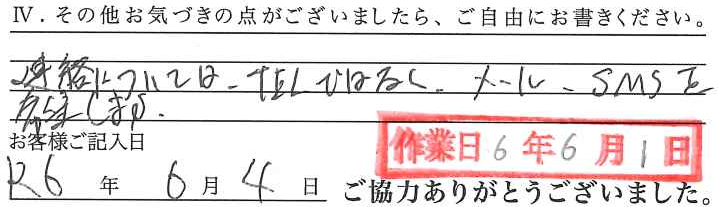 Ⅳ．その他お気づきの点がございましたら、ご自由にお書きください。
連絡については、TELではなく、メール、SMSを
希望します。
お客様ご記入日
作業日 6年6月1日
R6年 6月4日
ご協力ありがとうございました。